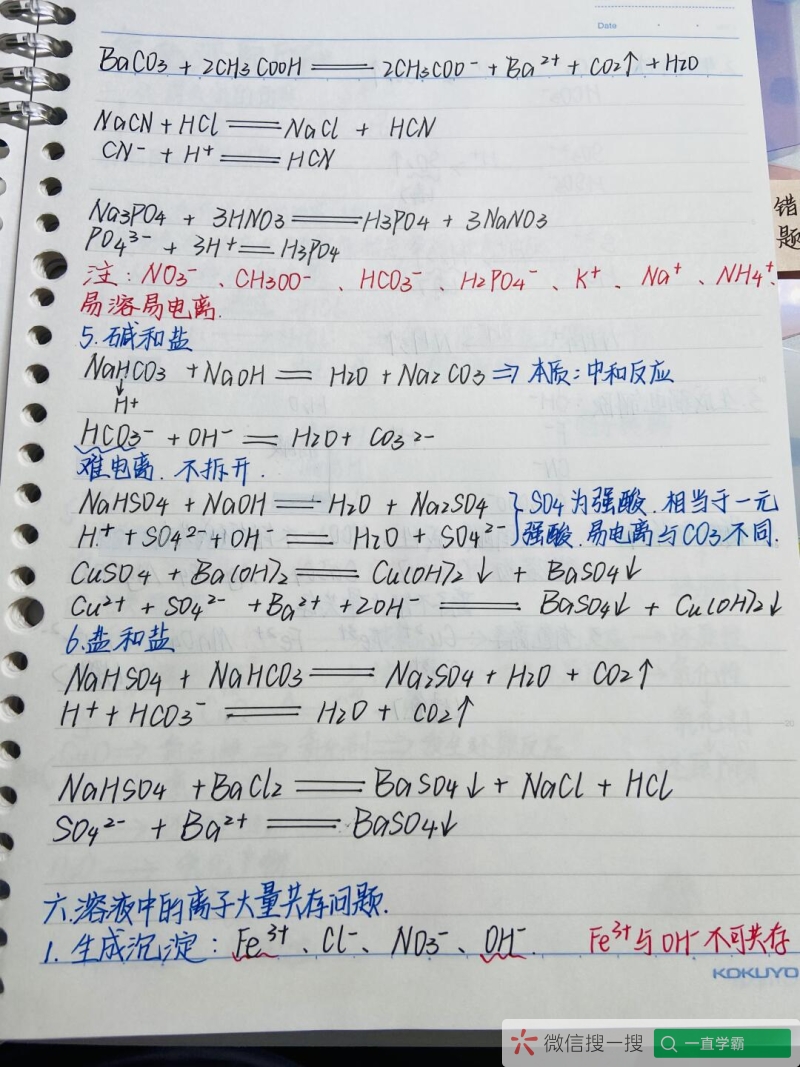 Date
BaCO3 + 2CH3COOH == 2CH3COO⁻ + Ba²⁺ + CO2↑ + H2O
NaCN + HCl == NaCl + HCN
CN⁻ + H⁺ == HCN
Na3PO4 + 3HNO3 == H3PO4 + 3NaNO3
PO4³⁻ + 3H⁺ == H3PO4
错题
注: NO3⁻、CH3OO⁻、HCO3⁻、H2PO4⁻、K⁺、Na⁺、NH4⁺、
易溶易电离.
5.碱和盐
NaHCO3 + NaOH == H2O + Na2CO3 ⇒ 本质:中和反应
↓
H+
HCO3⁻ + OH⁻ == H2O + CO3²⁻
难电离.不拆开.
NaHSO4 + NaOH == H2O + Na2SO4 } SO4为强酸.相当于一元
H⁺ + SO4²⁻ + OH⁻ == H2O + SO4²⁻ 强酸.易电离与CO3不同.
CuSO4 + Ba(OH)2 == Cu(OH)2↓ + BaSO4↓
Cu²⁺ + SO4²⁻ + Ba²⁺ + 2OH⁻ == BaSO4↓ + Cu(OH)2↓
6.盐和盐
NaHSO4 + NaHCO3 == Na2SO4 + H2O + CO2↑
H⁺ + HCO3⁻ == H2O + CO2↑
NaHSO4 + BaCl2 == BaSO4↓ + NaCl + HCl
SO4²⁻ + Ba²⁺ == BaSO4↓
六.溶液中的离子大量共存问题.
1.生成沉淀: Fe³⁺、Cl⁻、NO3⁻、OH⁻. Fe³⁺与OH⁻不可共存
KOKUYO
微信搜一搜 一直学霸